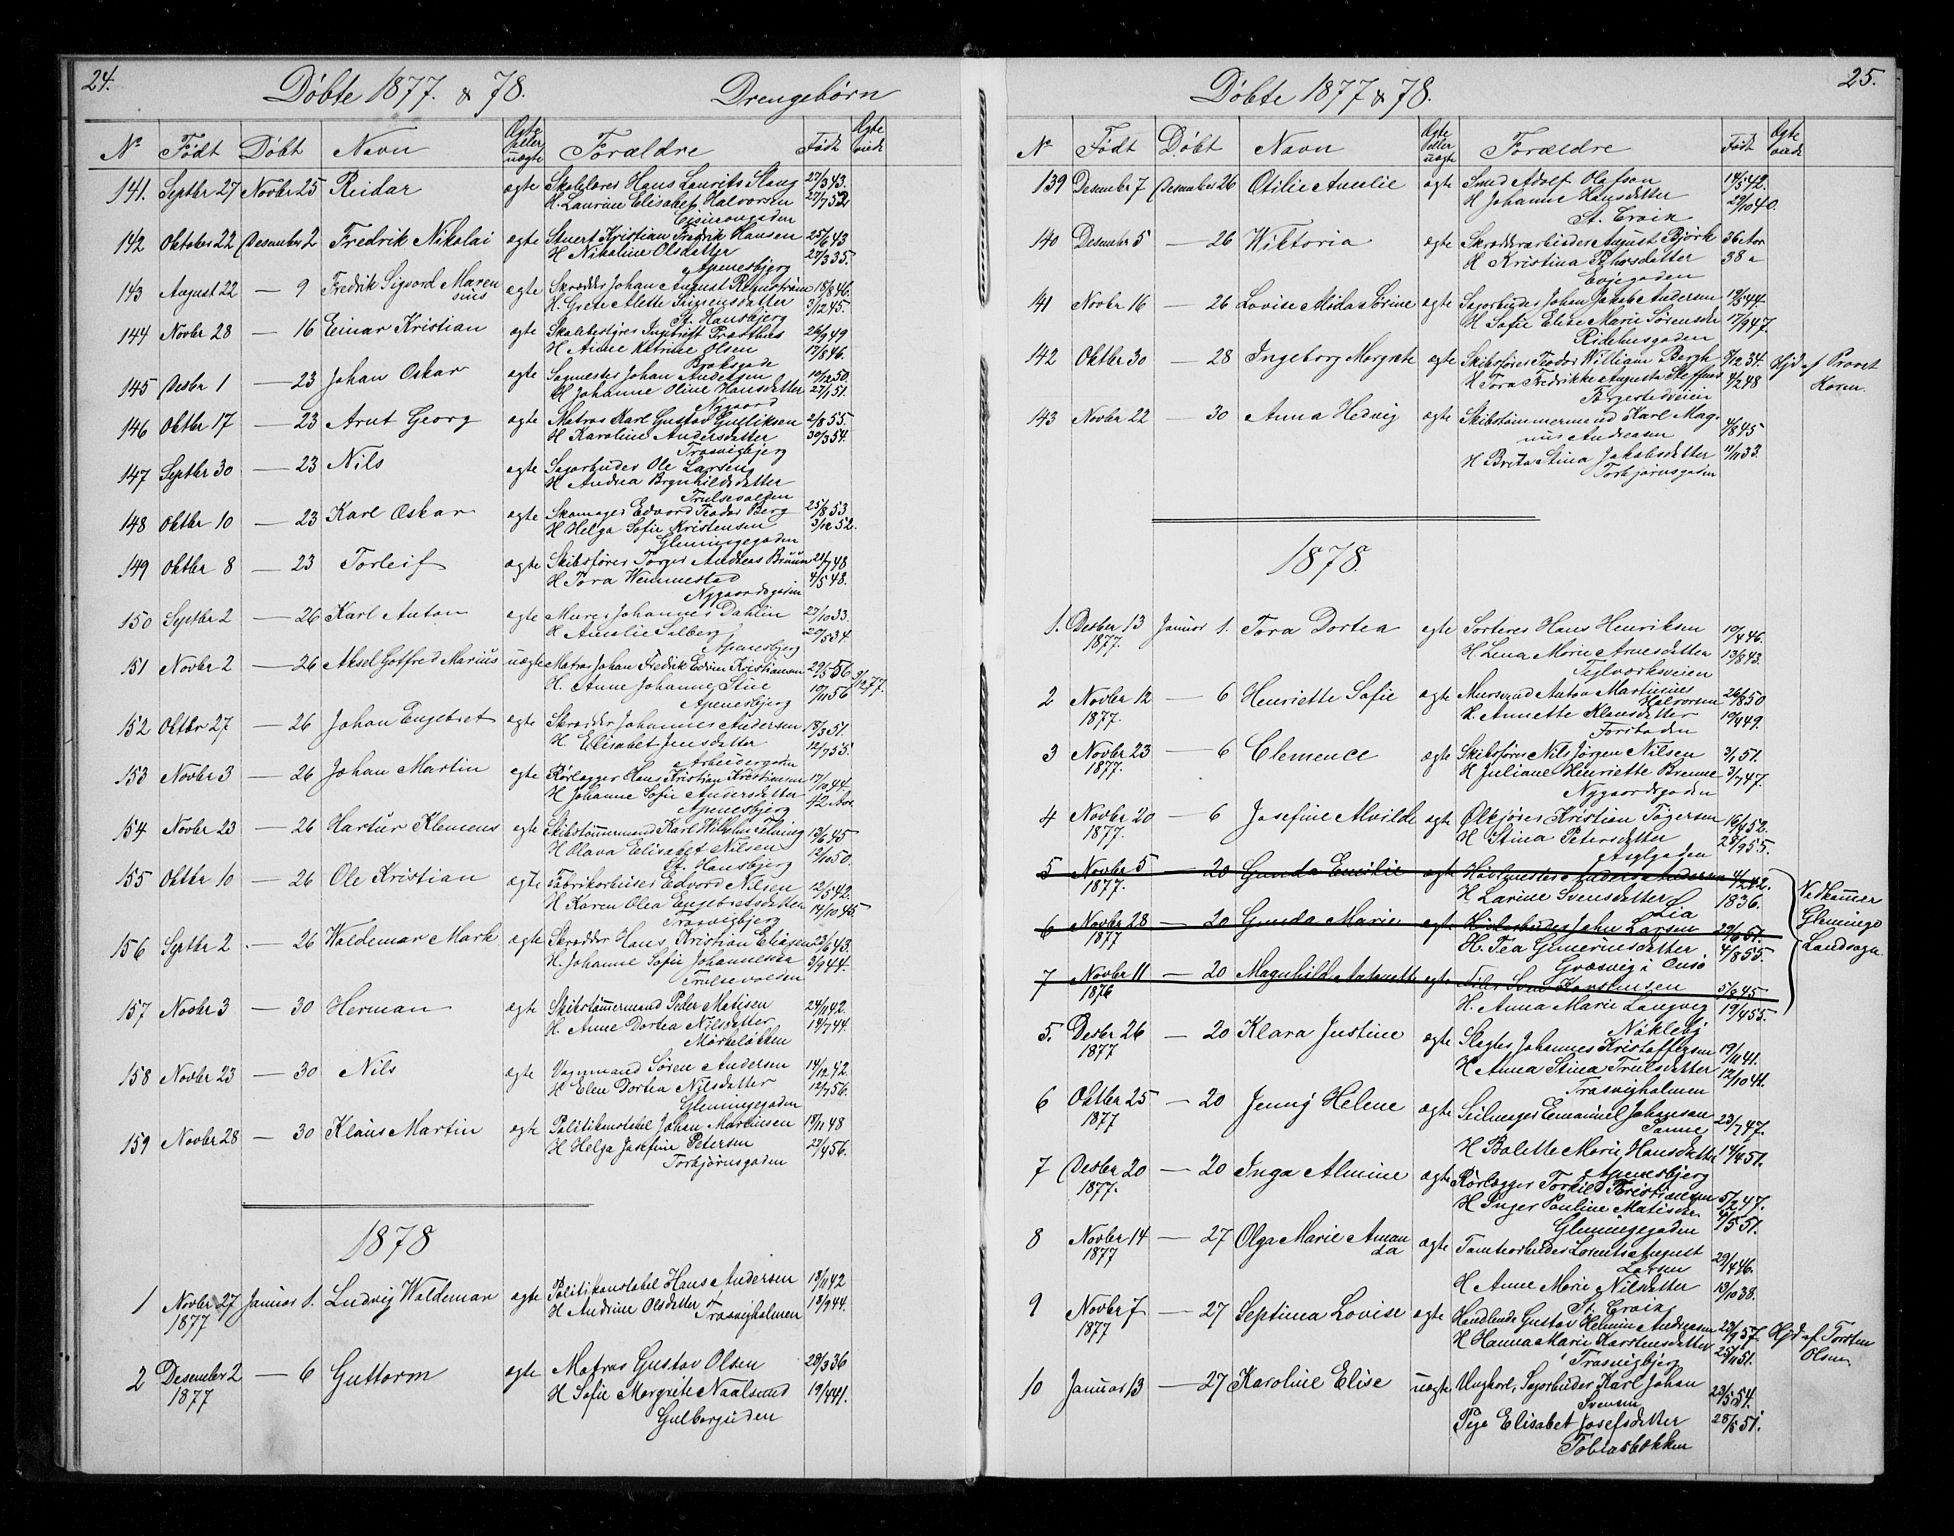 24.
Döbte 1877. & 78. Drengebørn
No Födt Döbt Navn Ægte eller uægte Forældre Födt Ægte viede
141. Septbr 27 Novbr 25 Reidar ægte Skolelærer Hans Laurits Stang 27/3 43.
H. Laurine Elisabet Halvorsen 27/7 52
142 Oktober 22 Desember 2 Fredrik Nikolai ægte Stuert Kristian Fredrik Hansen 25/6 43
H Nikoline Olsdatter 27/3 35.
Apenesbjerg
143 August 22 — 9 Fredrik Sigvard Maren ægte Skrædder Johan August 18/8 46.
sius H. Grete Alette Simensdatter 3/12 45.
St. Hansbjerg
144 Novbr 28 — 16 Einar Kristian ægte Skolebestyrer Ingebrigt 26/9 49
H Anne Katrine Olsen 17/8 46.
145 Desbr 1 — 23 Johan Oskar ægte Sagmester Johan Andersen 10/12 50.
H Johanne Oline Hansdatter 27/1 51.
Nygaard
146 Oktbr 17 — 23 Arnt Georg ægte Matros Karl Gustav Gulliksen 2/8 55.
H Karoline Andersdatter 30/3 54.
Trosvigbjerg
147 Septbr 30 — 23 Nils ægte Sagarbuder Ole Larsen
H Andrea Brynhildsdatter
Trulsevolden
148 Oktbr 10 — 23 Karl Oskar ægte Skomager Edvard Teodor Berg 25/8 53
H Helga Sofie Kristensen 3/12 52.
Glemmingegaden
149 Oktbr 8 — 23 Torleif ægte Skibsfører Torger Andreas Bruun 21/7 48
H Tora Wemmestad 4/5 48.
Nygaardsgaden
150 Septbr 2 — 26 Karl Anton ægte Murer Johannes Dahlin 27/10 33.
H Amalie Solberg 20/5 34
Apenesbjerg
151 Novbr 2 — 26 Aksel Gotfred Marius uægte Matros Johan Fredrik Edvin Kristiansen 29/5 56
H. Anne Johanne Stue 17/11 56 9/12 77.
Apenesbjerg
152 Oktbr 27 — 26 Johan Engebret ægte Skrædder Johannes Andersen 18/3 51.
H Elisabet Jensdatter 12/7 55.
Arbeidergaden
153 Novbr 3 — 26 Johan Martin ægte Rörlægger Hans Kristian Kristiansen 17/10 44.
H Johanne Sofie Andersdatter 42 Aar
Apenesbjerg
154 Novbr 23 — 26 Hartur Klemens ægte Skibstømmermand Karl Wilhelm 13/6 45
H Olava Elisabet Nilsen 12/10 50.
St. Hansbjerg
155 Oktbr 10 — 26 Ole Kristian ægte Fabrikarbuder Edvard Nilsen 12/5 42.
H Karen Olea Engebretsdatter 14/10 45
Trosvigbjerg
156 Septbr 2. — 26 Waldemar Mark ægte Skrædder Hans Kristian 23/6 43.
H. Johanne Sofie Johannesen 3/9 44.
Trulsevolden
157 Novbr 3 — 30 Herman ægte Skibstømmermand Peder Matisen 24/11 42.
H. Anne Dortea Nilsdatter 14/7 44.
Mörkeløkken
158 Novbr 23 — 30 Nils ægte Vognmand Søren Andersen 14/12 42.
H Elen Dortea Nilsdatter 12/7 56.
Glemmingegaden
159 Novbr 28 — 30 Klaus Martin ægte Politikonstabel Johan Martinsen 18/11 48
H Helga Josefine Petersen 27/4 56.
Torbjørnsgaden
1878
1 Novbr 27 Januar 1. Ludvig Waldemar ægte Politikonstabel Hans Andersen 18/11 42
1877 H Andrine Olsdatter 18/9 44.
Trosvigholmen
2 Desember 2 — 6 Guttorm ægte Matros Gustav Olsen 28/3 36
1877 H Sofie Margrete Naalsund 19/4 41.
Gulbergsiden
25.
Döbte 1877 & 78.
No Födt Döbt Navn Ægte eller uægte Forældre Födt Ægte viede
139 Desember 7 Desember 26 Otilie Amalie ægte Smed Adolf Olafsen 14/5 42.
H Johanne Hansdatter 29/10 40.
St. Croix
140 Desember 5 — 26 Wiktoria ægte Skrædderarbieder August Björk 36 Aar
H Kristina 38 "
41 Novbr 16 — 26 Lovise Alida Sørine ægte Sagarbuder Johan Jakob Andersen 19/8 44.
H Sofie Elise Marie Sørensdr 17/9 47.
Ridehusgaden
142 Oktbr 30 — 28 Ingeborg Margrete ægte Skibsfører Teodor William Bergh 8/12 34. Hjd af Provst
H Tora Fredrikke Augusta Steffens 4/2 48 Horn.
Færgestedveien
143 Novbr 22 — 30 Anna Hedvig ægte Skibstømmermand Karl Mag-
nus Andreasen 4/8 45
H Brita Stina Jakobsdatter 11/11 33.
Torbjørnsgaden
1878.
1. Desbr 13 Januar 1. Tora Dortea ægte Sorterer Hans Henriksen 19/4 46.
1877. H Lena Marie Arnesdatter 13/8 43.
Teglværksveien
2 Novbr 12 — 6 Henriette Sofie ægte Murmand Anton Martinius 26/8 50
1877. Halvorsen
H. Annette Klausdatter 19/4 49.
Forstaden
3 Novbr 23 — 6 Clemence ægte Skibsfører Nils Jørgen Nilsen 3/1 51.
1877. H Juliane Henriette Bremme 3/7 47.
Nygaardsgaden
4 Novbr 20 — 6 Josefine Alvilde ægte Ølkjører Kristian Tögersen 16/4 52.
1877. H Stina Petersdatter 28/9 55.
Asylgaden
5 Novbr 5 — 20 Gunda Emilie ægte Høvlmester Anders Andersen 4/2 42.
1877. H Larine Svensdatter 1836. Vedkommer
Lia Glemminge
6 Novbr 28 — 20 Gunda Marie ægte John Larsen 29/6 51. Landsogn.
1877 H. Tea 4/8 55.
Græsvig i Onsö
7 Novbr 11 — 20 Magnhild Antonette ægte Filer Sven Karstensen 5/6 45
1876 H. Anna Marie Langvig 19/4 55.
Nökleby
5. Desbr 26 — 20 Klara Justine ægte Slagter Johannes Kristoffersen 19/11 41.
1877 H Anna Stina Trulsdatter 12/10 44.
Trosvigholmen
6 Oktbr 25 — 20 Jenny Helene ægte Seilmager Emanuel Johansen 23/7 47.
1877 Sanne
H Bolette Marie Hansdatter 14/4 51.
Apenesbjerg
7 Desbr 20 — 20 Inga Almine ægte Rörlægger Torkild Kristiansen 5/2 47.
1877. H Inger Pauline Matisdr 9/5 51.
Glemmingegaden
8 Novbr 14 — 27 Olga Marie Aman ægte Tomtearbuder Lorents August
1877 da Larsen 29/4 46.
H Anne Marie Nilsdatter 13/10 38.
St. Croix
9 Novbr 7 — 27 Septima Lovise ægte Handlende Gustav Herman Andreasen 23/9 57. Hjd af Torsten
1877 H Hanna Marie Karstensdatter 25/11 51. Olsen
Trosvigbjerg
10 Januar 13 — 27 Karoline Elise uægte Ungkarl, Sagarbuder Karl Johan 23/5 54.
Svensen
Pige Elisabet Josefsdatter 28/8 51.
Tobiasbækken